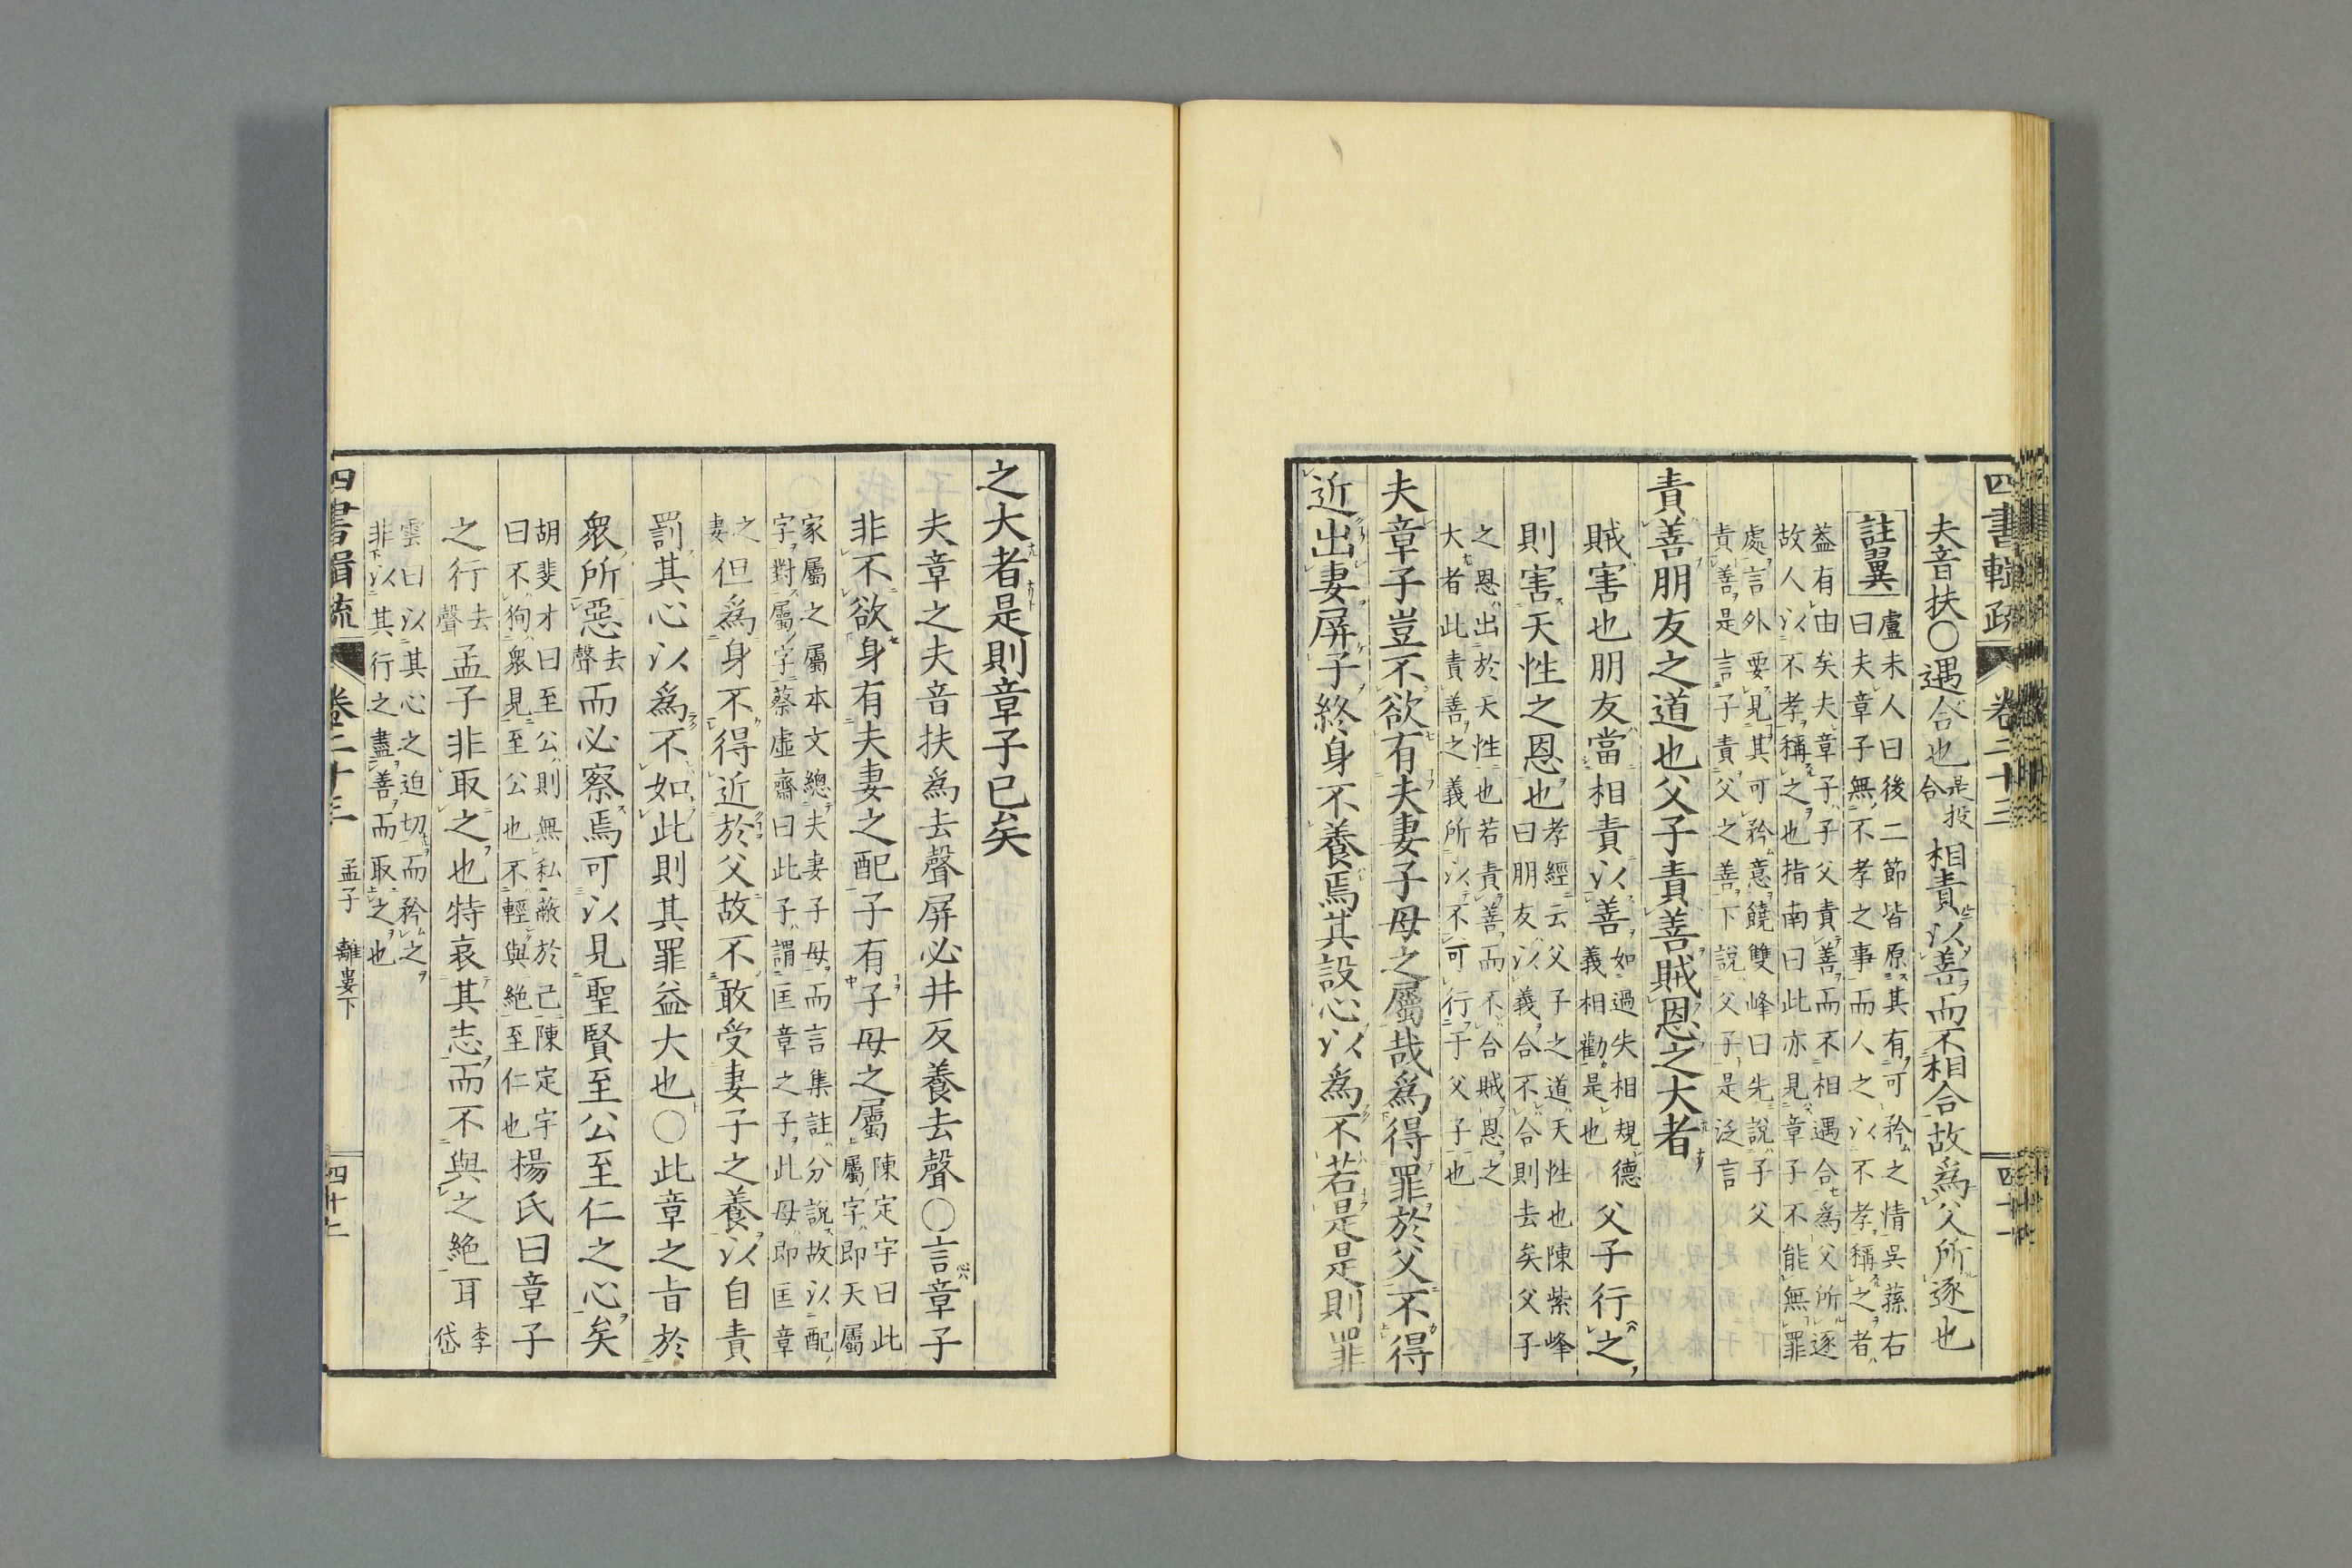 四書輯疏 卷二十三
夫音扶〇遇合也是投合相責以善而不相合故爲父所逐也
註翼
盧未人曰後二節皆原其有可矜之情吳蓀右
曰夫章子無不孝之事而人之以不孝稱之者
蓋有由矣夫章子子父責善而不相遇合爲父所逐
故人以不孝稱之也指南曰此亦見章子不能無罪
處言外要見其可矜意饒雙峰曰先說子父
責善是言子責父之善下說父子是泛言
責善朋友之道也父子責善賊恩之大者
賊害也朋友當相責以善如過失相規德義相勸是也父子行之
則害天性之恩也孝經云父子之道天性也陳紫峰
曰朋友以義合不合則去矣父子
之恩出於天性也若責善而不合賊恩之
大者此責善之義所以不可行于父子也
夫章子豈不欲有夫妻子母之屬哉爲得罪於父不得
近出妻屏子終身不養焉其設心以爲不若是是則罪
之大者是則章子已矣
夫章之夫音扶爲去聲屏必井反養去聲〇言章子
非不欲身有夫妻之配子有子母之屬陳定宇曰此
屬字即天屬
家屬之屬本文總夫妻子母而言集註分說故以配
字對屬字蔡虛齋曰此子謂匡章之子此母即匡章
之妻但爲身不得近於父故不敢受妻子之養以自責
罰其心以爲不如此則其罪益大也〇此章之旨於
衆所惡去聲而必察焉可以見聖賢至公至仁之心矣
胡斐才曰至公則無私蔽於己陳定宇
曰不狥衆見至公也不輕與絶至仁也楊氏曰章子
之行去聲孟子非取之也特哀其志而不與之絶耳李岱
雲曰以其心之迫切而矜之
非以其行之盡善而取之也
四書輯疏 卷二十三 孟子 離婁下 四十七